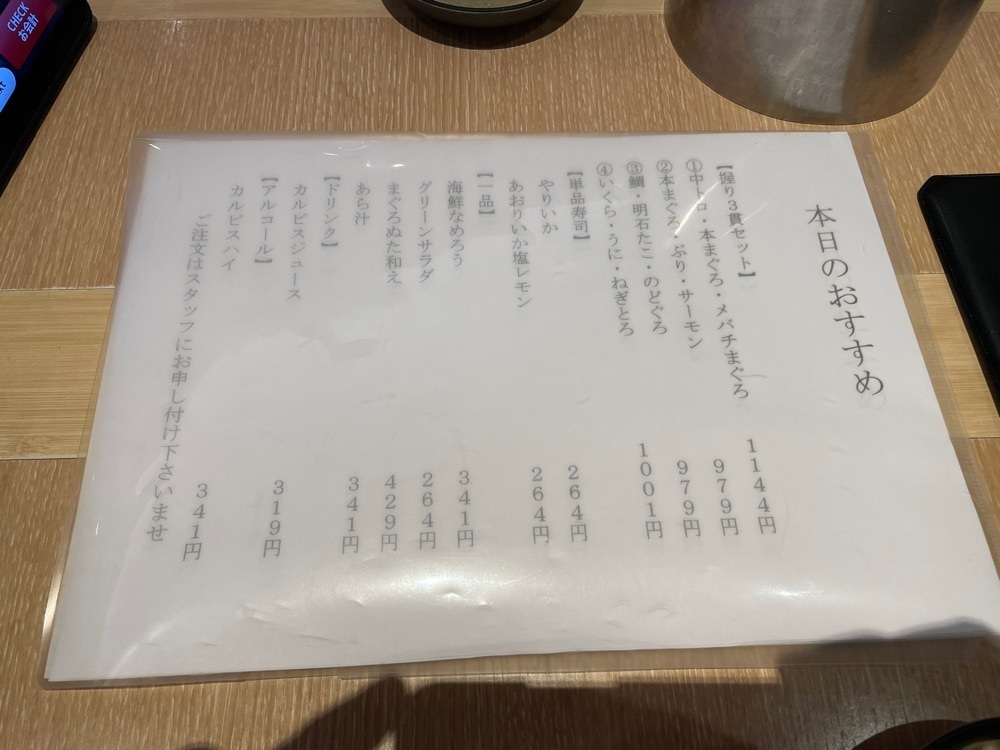 CHECK
お会計
本日のおすすめ
【握り3貫セット】
①中トロ・本まぐろ・メバチまぐろ 1144円
②本まぐろ・ぶり・サーモン 979円
③鯛・明石たこ・のどぐろ 979円
④いくら・うに・ねぎとろ 1001円
【単品寿司】
やりいか 264円
あおりいか塩レモン 264円
【一品】
海鮮なめろう 341円
グリーンサラダ 264円
まぐろぬた和え 429円
あら汁 341円
【ドリンク】
カルピスジュース 319円
【アルコール】
カルピスハイ 341円
ご注文はスタッフにお申し付け下さいませ